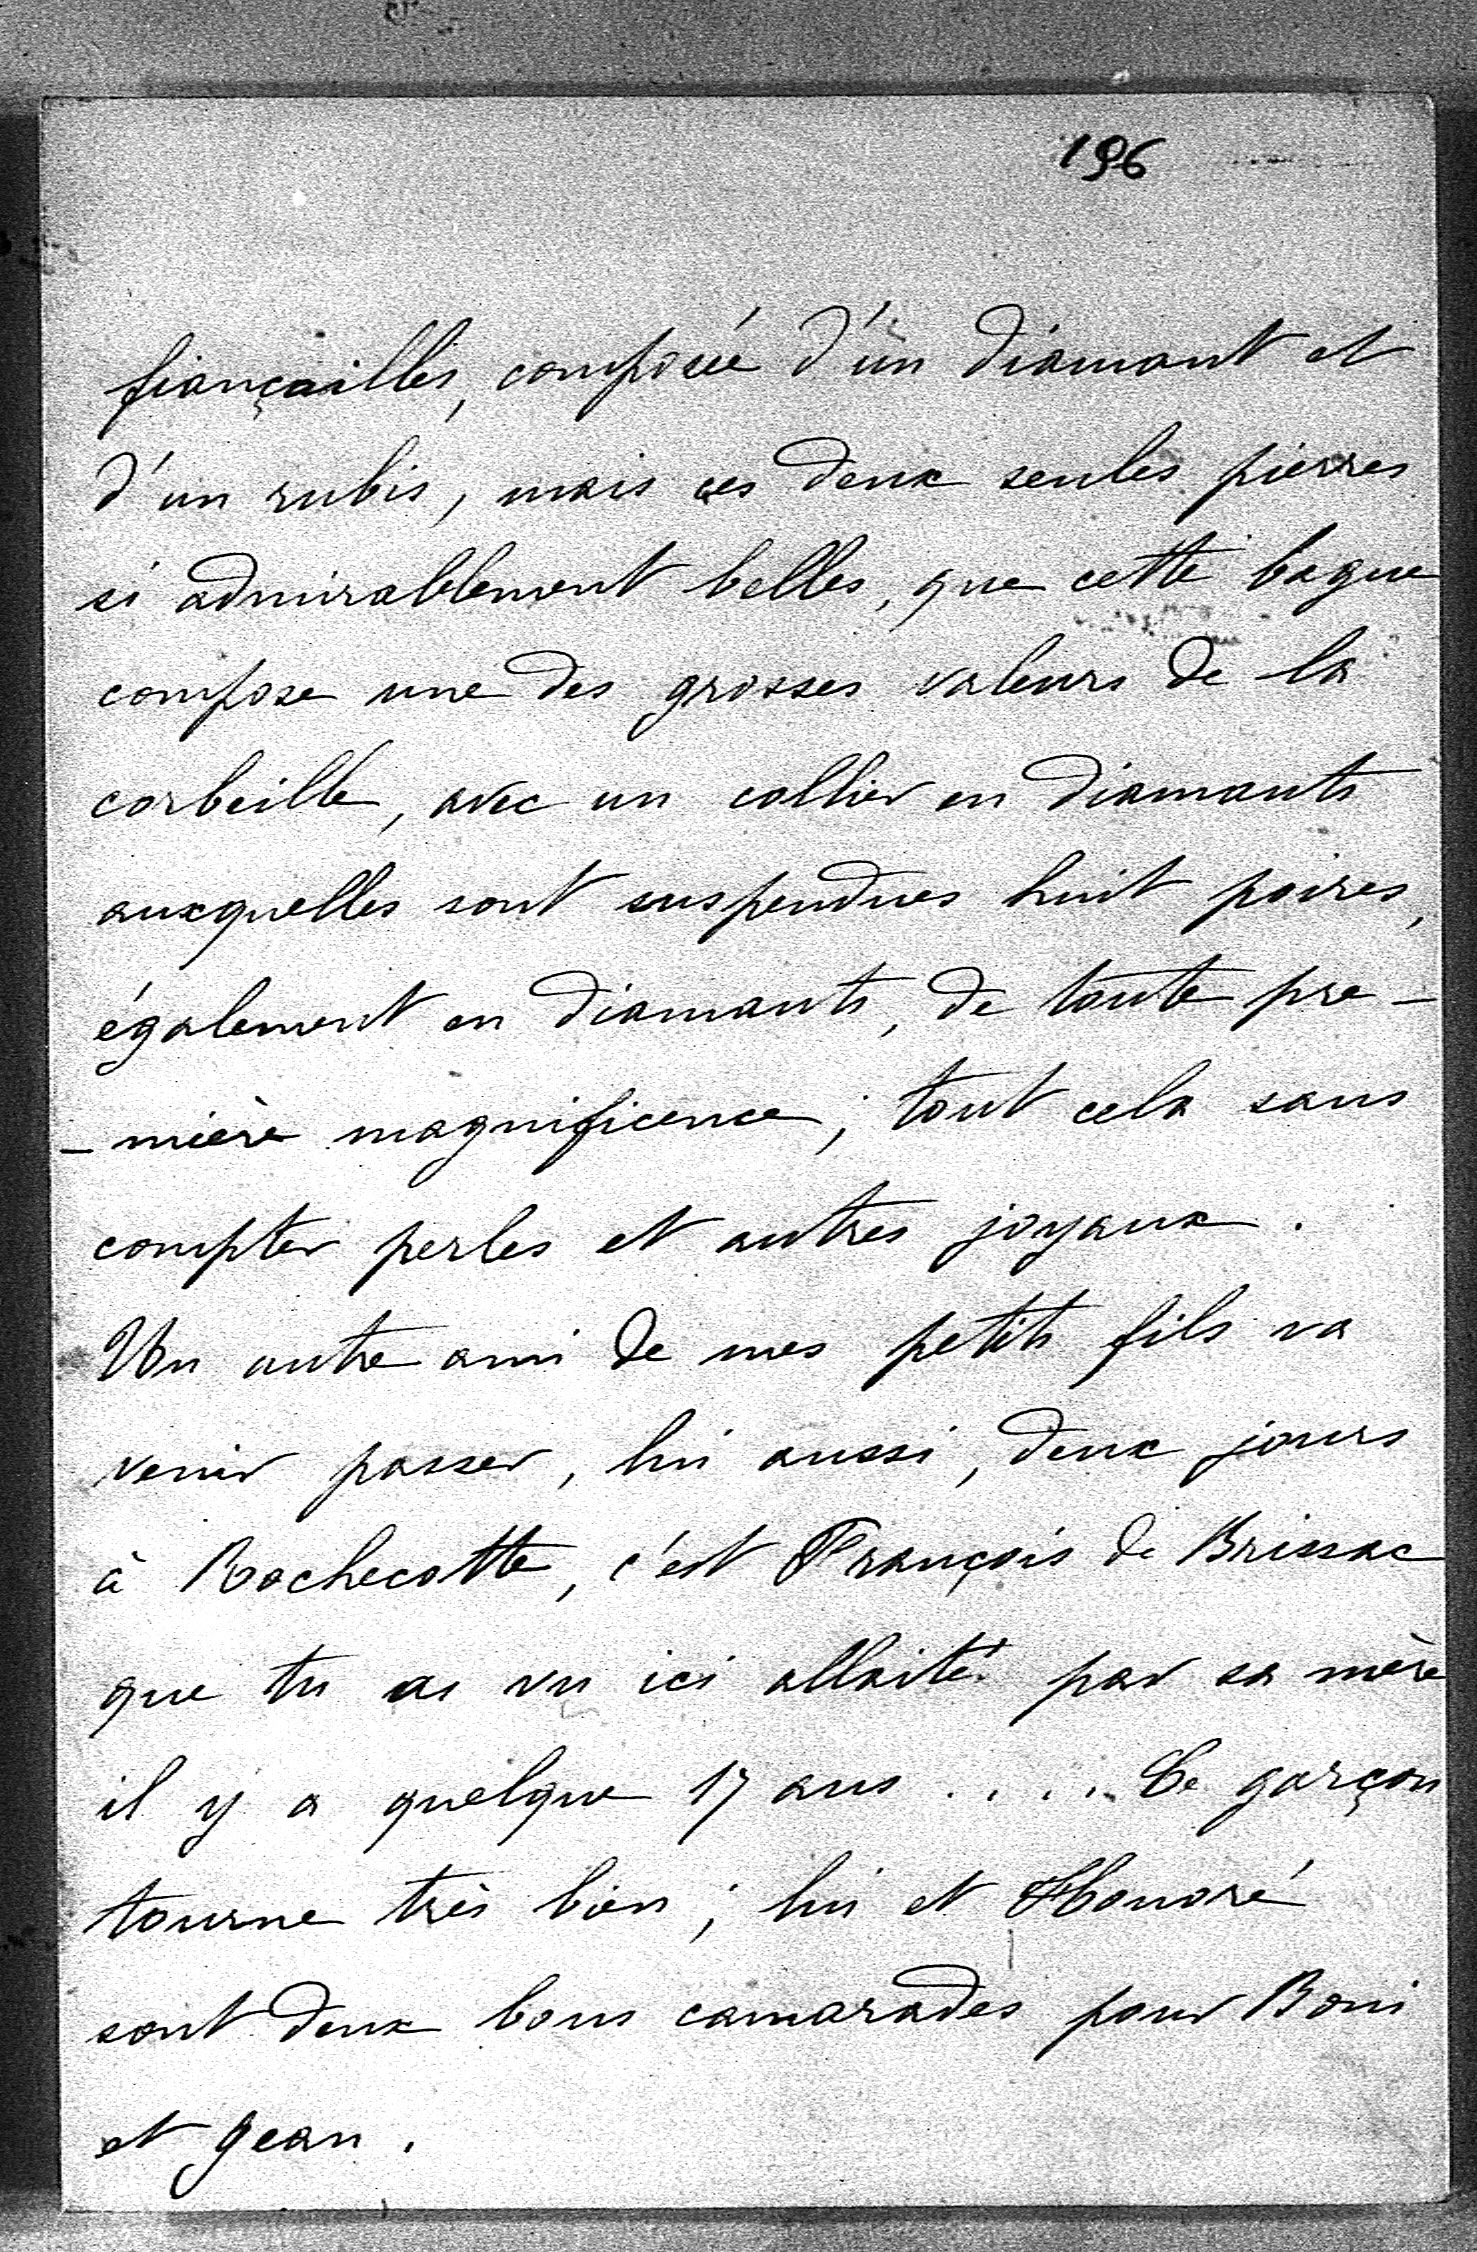 196
fiançailles, composée d'un diamant et
d'un rubis, mais ces deux seules pierres
si admirablement belles, que cette bague
compose une des grosses valeurs de la
corbeille, avec un collier en diamants
auxquelles sont suspendues huit poires,
également en diamants, de toute pre-
-mière magnificence; tout cela sans
compter perles et autres joyaux.
Un autre ami de mes petits fils va
venir passer, lui aussi, deux jours
à Rochecotte, c'est François de Brissac
que tu as vu ici allaité par sa mère
il y a quelque 17 ans . . . . Ce garçon
tourne très bien; lui et Honoré
sont deux bons camarades pour Boni
et Jean.